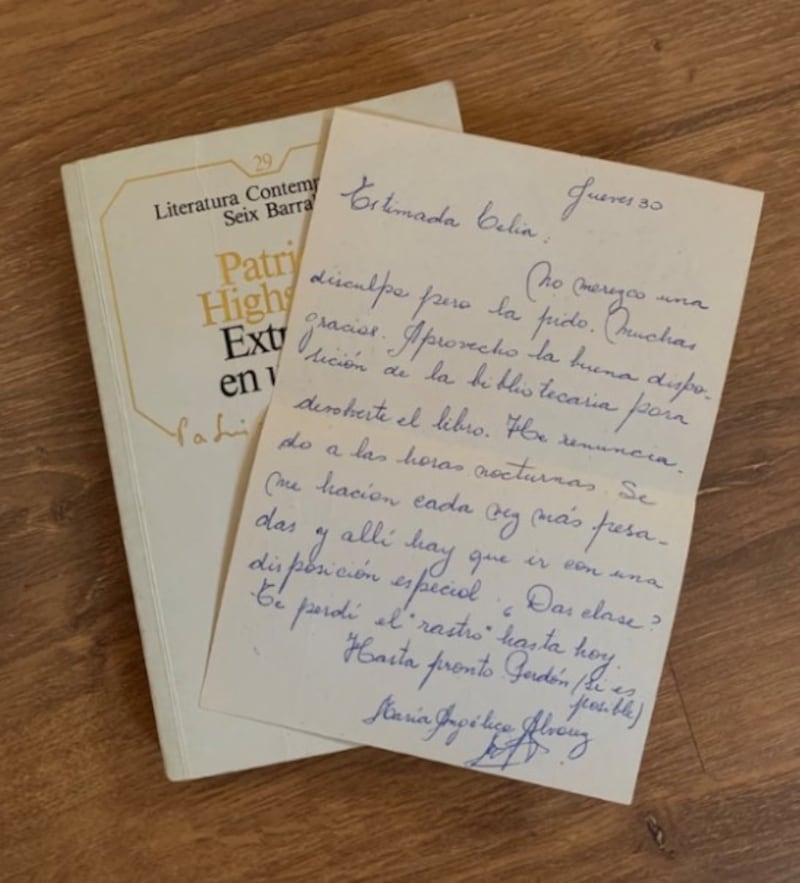 29
Literatura Contemp
Seix Barral
Patri
Highs
Extr
en u
Jueves 30
Estimada Celia:
No merezco una
disculpa pero la pido. Muchas
gracias. Aprovecho la buena dispo-
sición de la bibliotecaria para
devolverte el libro. He renuncia-
do a las horas nocturnas. Se
me hacían cada vez más pesa-
das y allí hay que ir con una
disposición especial. ¿Das clase?
Te perdí el "rastro" hasta hoy.
Hasta pronto. Perdón (si es
posible)
María Angélica Alvarez